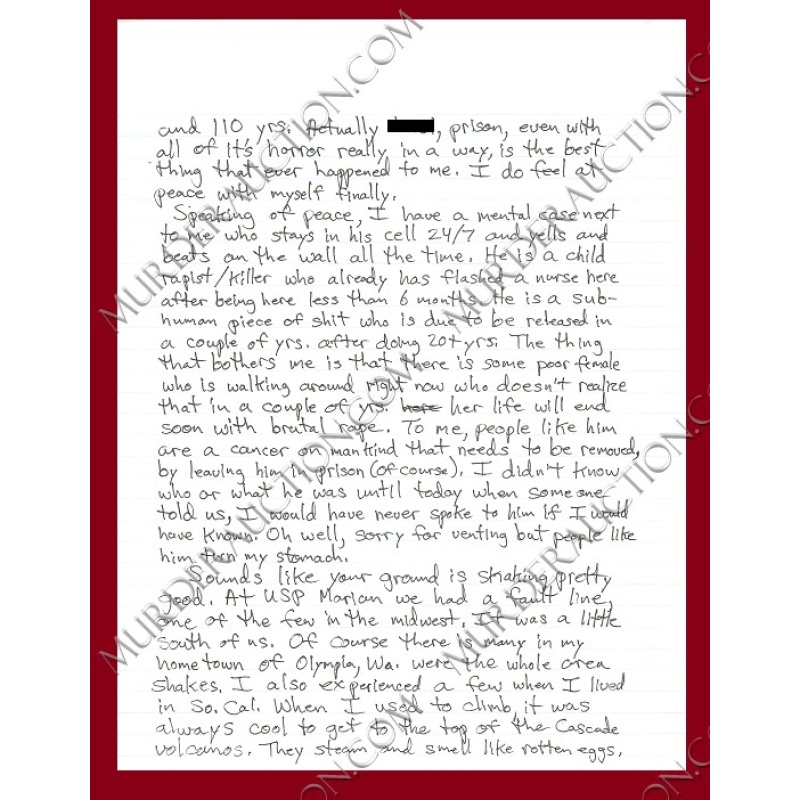 and 110 yrs. Actually, prison, even with
all of it's horror really, in a way, is the best
thing that ever happened to me. I do feel at
peace with myself finally.
Speaking of peace, I have a mental case next
to me who stays in his cell 24/7 and yells and
beats on the wall all the time. He is a child
rapist/killer who already has flashed a nurse here
after being here less than 6 months. He is a sub-
human piece of shit who is due to be released in
a couple of yrs. after doing 20+ yrs. The thing
that bothers me is that there is some poor female
who is walking around right now who doesn't realize
that in a couple of yrs. here her life will end
soon with brutal rape. To me, people like him
are a cancer on mankind that needs to be removed,
by leaving him in prison (of course). I didn't know
who or what he was until today when someone
told us, I would have never spoke to him if I would
have known. Oh well, sorry for venting but people like
him turn my stomach.
Sounds like your ground is shaking pretty
good. At USP Marion we had a fault line,
one of the few in the midwest. It was a little
south of us. Of course there is many in my
hometown of Olympia, Wa. were the whole area
shakes. I also experienced a few when I lived
in So. Cal. When I used to climb, it was
always cool to get to the top of the Cascade
volcanos. They steam and smell like rotten eggs.
MURDERAUCTION.COM
MURDERAUCTION.COM
MURDERAUCTION.COM
MURDERAUCTION.COM